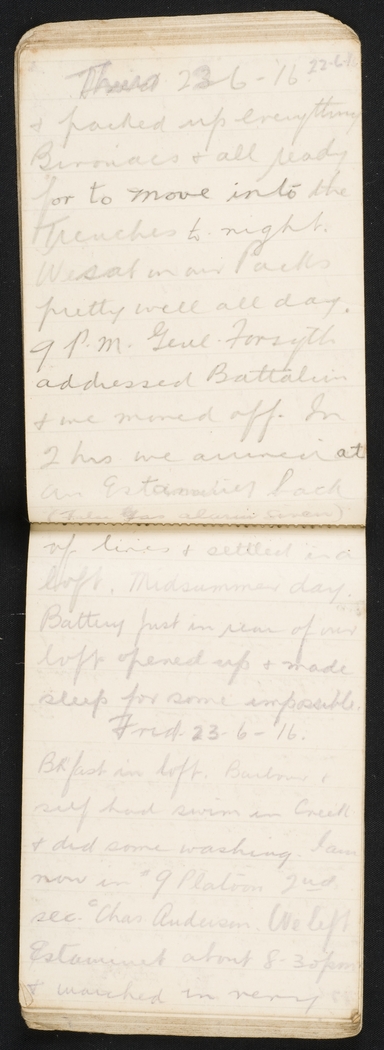 Thurs 23-6-16. 22-6-16
& packed up everything
Bivouacs & all ready
for to move into the
Trenches to night.
We sat on our Packs
pretty well all day.
9 P.M. Genl. Forsyth
addressed Battalion
& we moved off. In
2 hrs we arrived at
an Estaminet back
of lines & settled in a
loft. Midsummer day.
Battery just in rear of our
loft opened up & made
sleep for some impossible.
Frid. 23-6-16.
BKfast in loft. Barbour &
self had swim in Creek
& did some washing. I am
now in 9 Platoon 2nd
sec. Chas Anderson. We left
Estaminet about 8-30pm
& marched in very